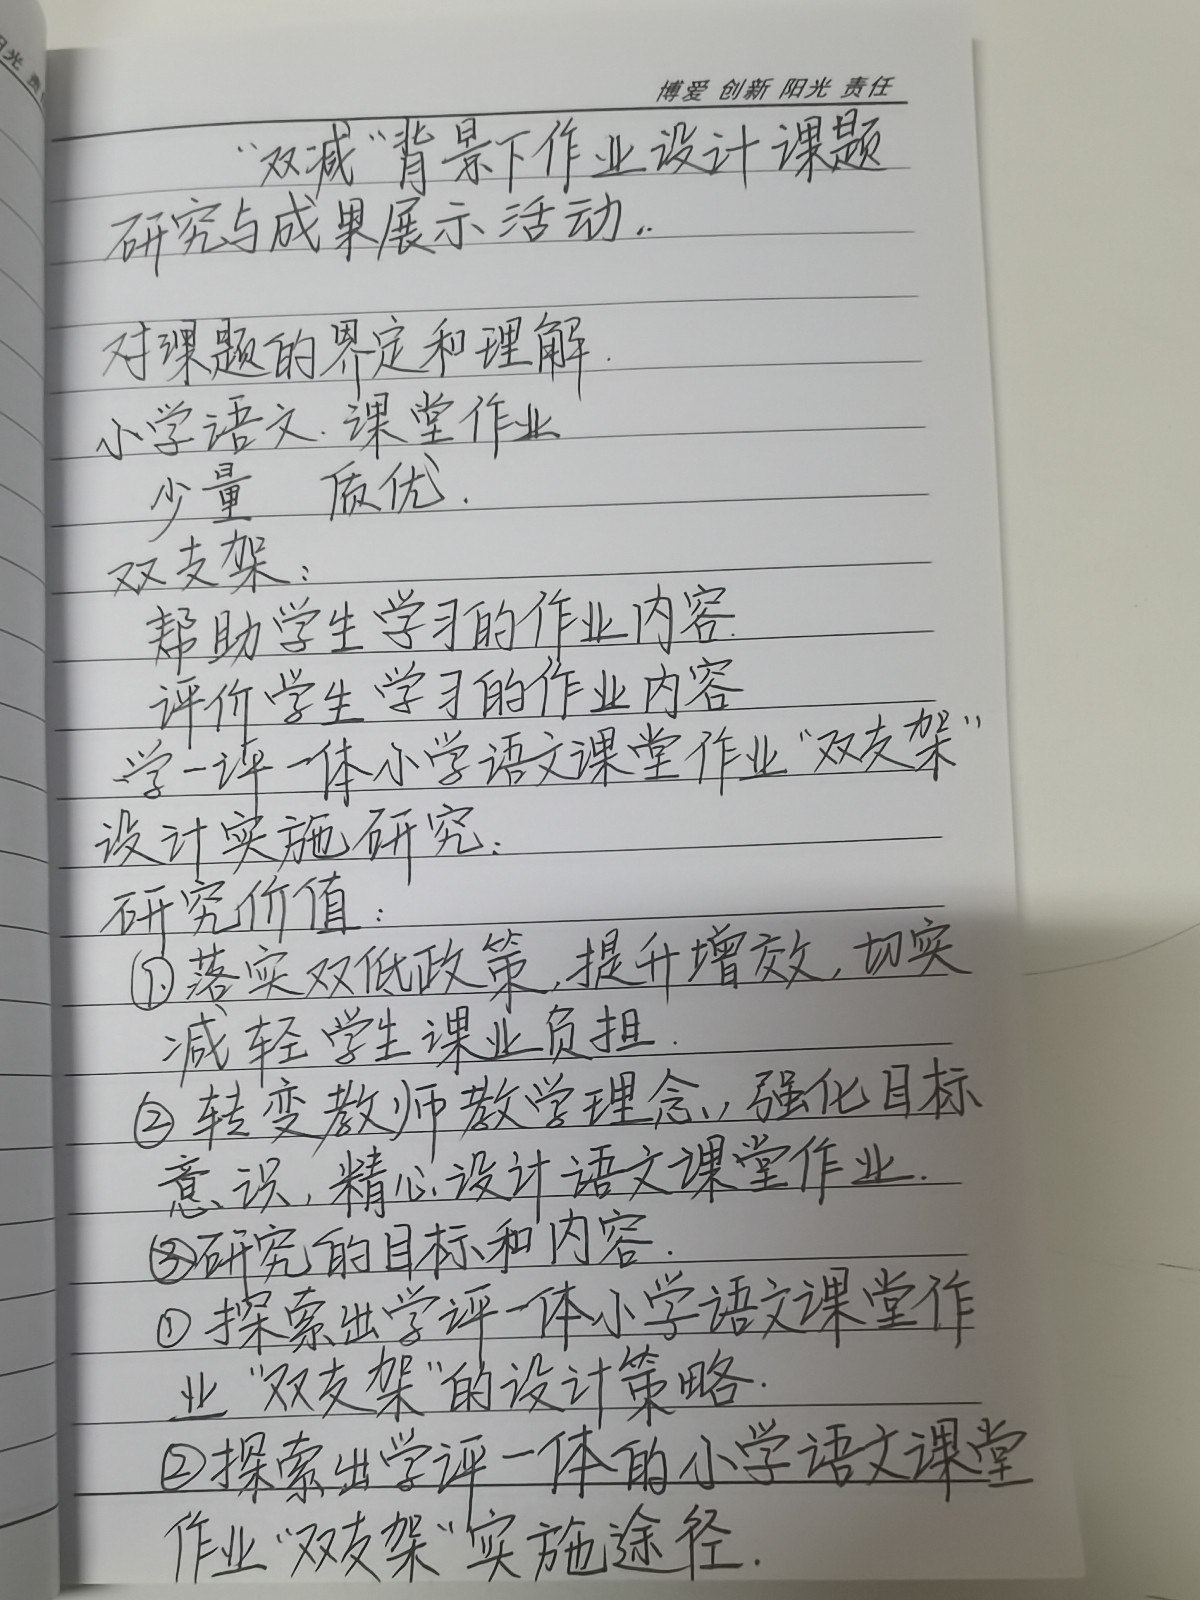 博爱 创新 阳光 责任
“双减”背景下作业设计课题
研究与成果展示活动..
对课题的界定和理解.
小学语文.课堂作业
少量 质优.
双支架:
帮助学生学习的作业内容.
评价学生学习的作业内容
学一评一体小学语文课堂作业“双支架”
设计实施研究:
研究价值:
①落实双低政策,提升增效,切实
减轻学生课业负担.
②转变教师教学理念,,强化目标
意识,精心设计语文课堂作业.
③研究的目标和内容.
①探索出学评一体小学语文课堂作
业“双支架”的设计策略.
②探索出学评一体的小学语文课堂
作业“双支架”实施途径.